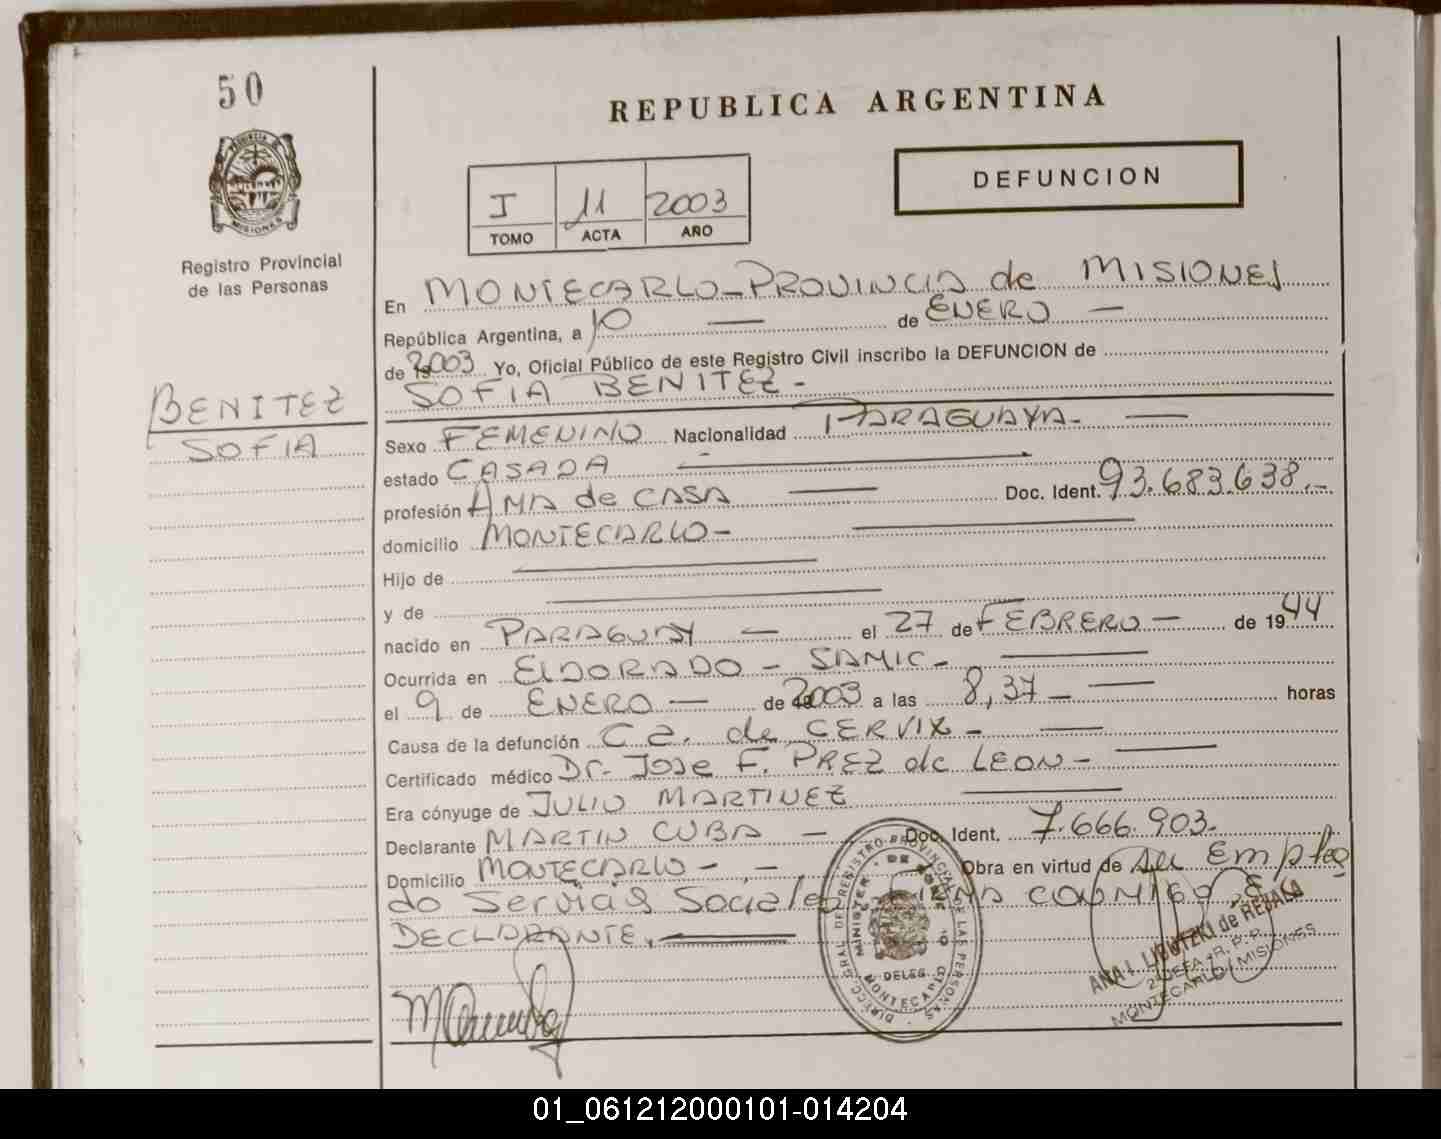 50
REPUBLICA ARGENTINA
PROVINCIA DE
MISIONES
Registro Provincial
de las Personas
I 11 2003
TOMO ACTA AÑO
DEFUNCION
En MONTECARLO - PROVINCIA de MISIONES
República Argentina, a 10 — de ENERO —
de 2003 Yo, Oficial Público de este Registro Civil inscribo la DEFUNCION de
SOFIA BENITEZ -
BENITEZ
SOFIA
Sexo FEMENINO Nacionalidad PARAGUAYA. —
estado CASADA —
profesión AMA de CASA — Doc. Ident. 93.683.638.-
domicilio MONTECARLO - —
Hijo de —
y de —
nacido en PARAGUAY — el 27 de FEBRERO — de 1944
Ocurrida en ELDORADO - SAMIC - —
el 9 de ENERO — de 2003 a las 8,37 — horas
Causa de la defunción Ca. de CERVIX - —
Certificado médico Dr. Jose F. PREZ de LEON - —
Era cónyuge de JULIO MARTINEZ —
Declarante MARTIN CUBA — Doc. Ident. 7.666.903.
Domicilio MONTECARLO - . - Obra en virtud de su Emplea
do Servia Sociales CONMIGO E
DECLARANTE. —
DIRECC. GRAL DEL REGISTRO PROVINCIAL DE LAS PERSONAS
DELEG.
MONTECARLO
ANA I. de REBALA
R. P. P.
MONTECARLO MISIONES
01_061212000101-014204